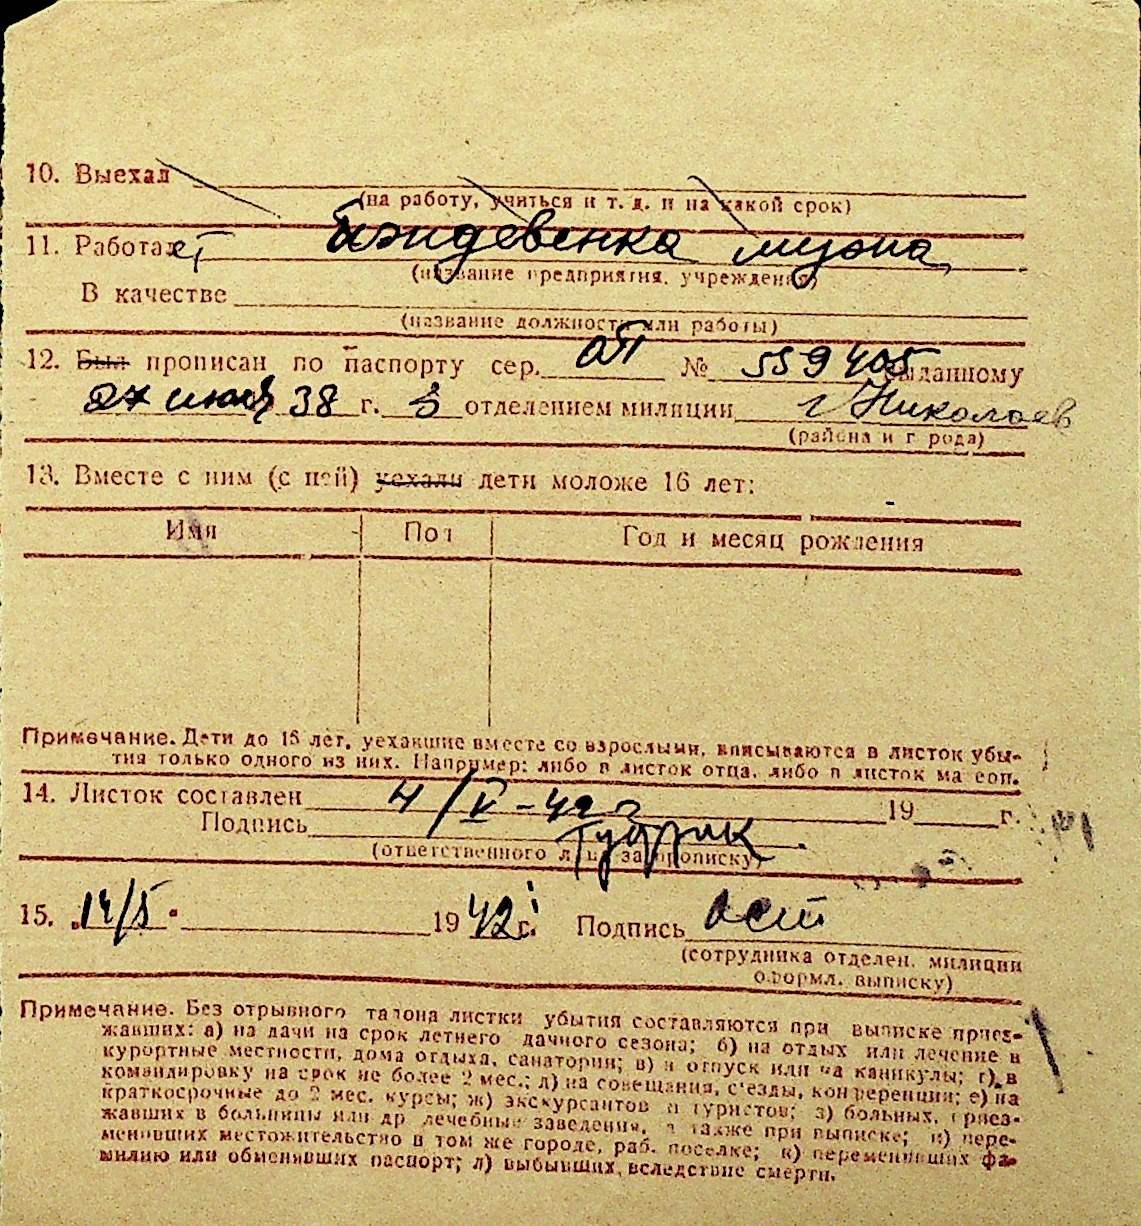 10. Выехал
(на работу, учиться и т. д. и на какой срок)
11. Работает иждевенка мужа
(название предприятия, учреждения)
В качестве
(название должности или работы)
12. Был прописан по паспорту сер. № 559405 выданному
27 июля 38 г. 3 отделением милиции г Николаев
(района и города)
13. Вместе с ним (с ней) уехали дети моложе 16 лет:
Имя Пол Год и месяц рождения
Примечание. Дети до 16 лет, уехавшие вместе со взрослыми, вписываются в листок убы-
тия только одного из них. Например: либо в листок отца, либо в листок матери.
14. Листок составлен 4/V-42 г 19 г.
Подпись
(ответственного лица за прописку)
15. 14/5 1942 г. Подпись
(сотрудника отделен. милиции
оформл. выписку)
Примечание. Без отрывного талона листки убытия составляются при выписке приез-
жавших: а) на дачи на срок летнего дачного сезона; б) на отдых или лечение в
курортные местности, дома отдыха, санатории; в) в отпуск или на каникулы; г) в
командировку на срок не более 2 мес.; д) на совещания, съезды, конференции; е) на
краткосрочные до 2 мес. курсы; ж) экскурсантов и туристов; з) больных, приез-
жавших в больницы или др лечебные заведения, а также при выписке; и) пере-
менивших местожительство в том же городе, раб. поселке; к) переменивших фа-
милию или обменивших паспорт; л) выбывших вследствие смерти.